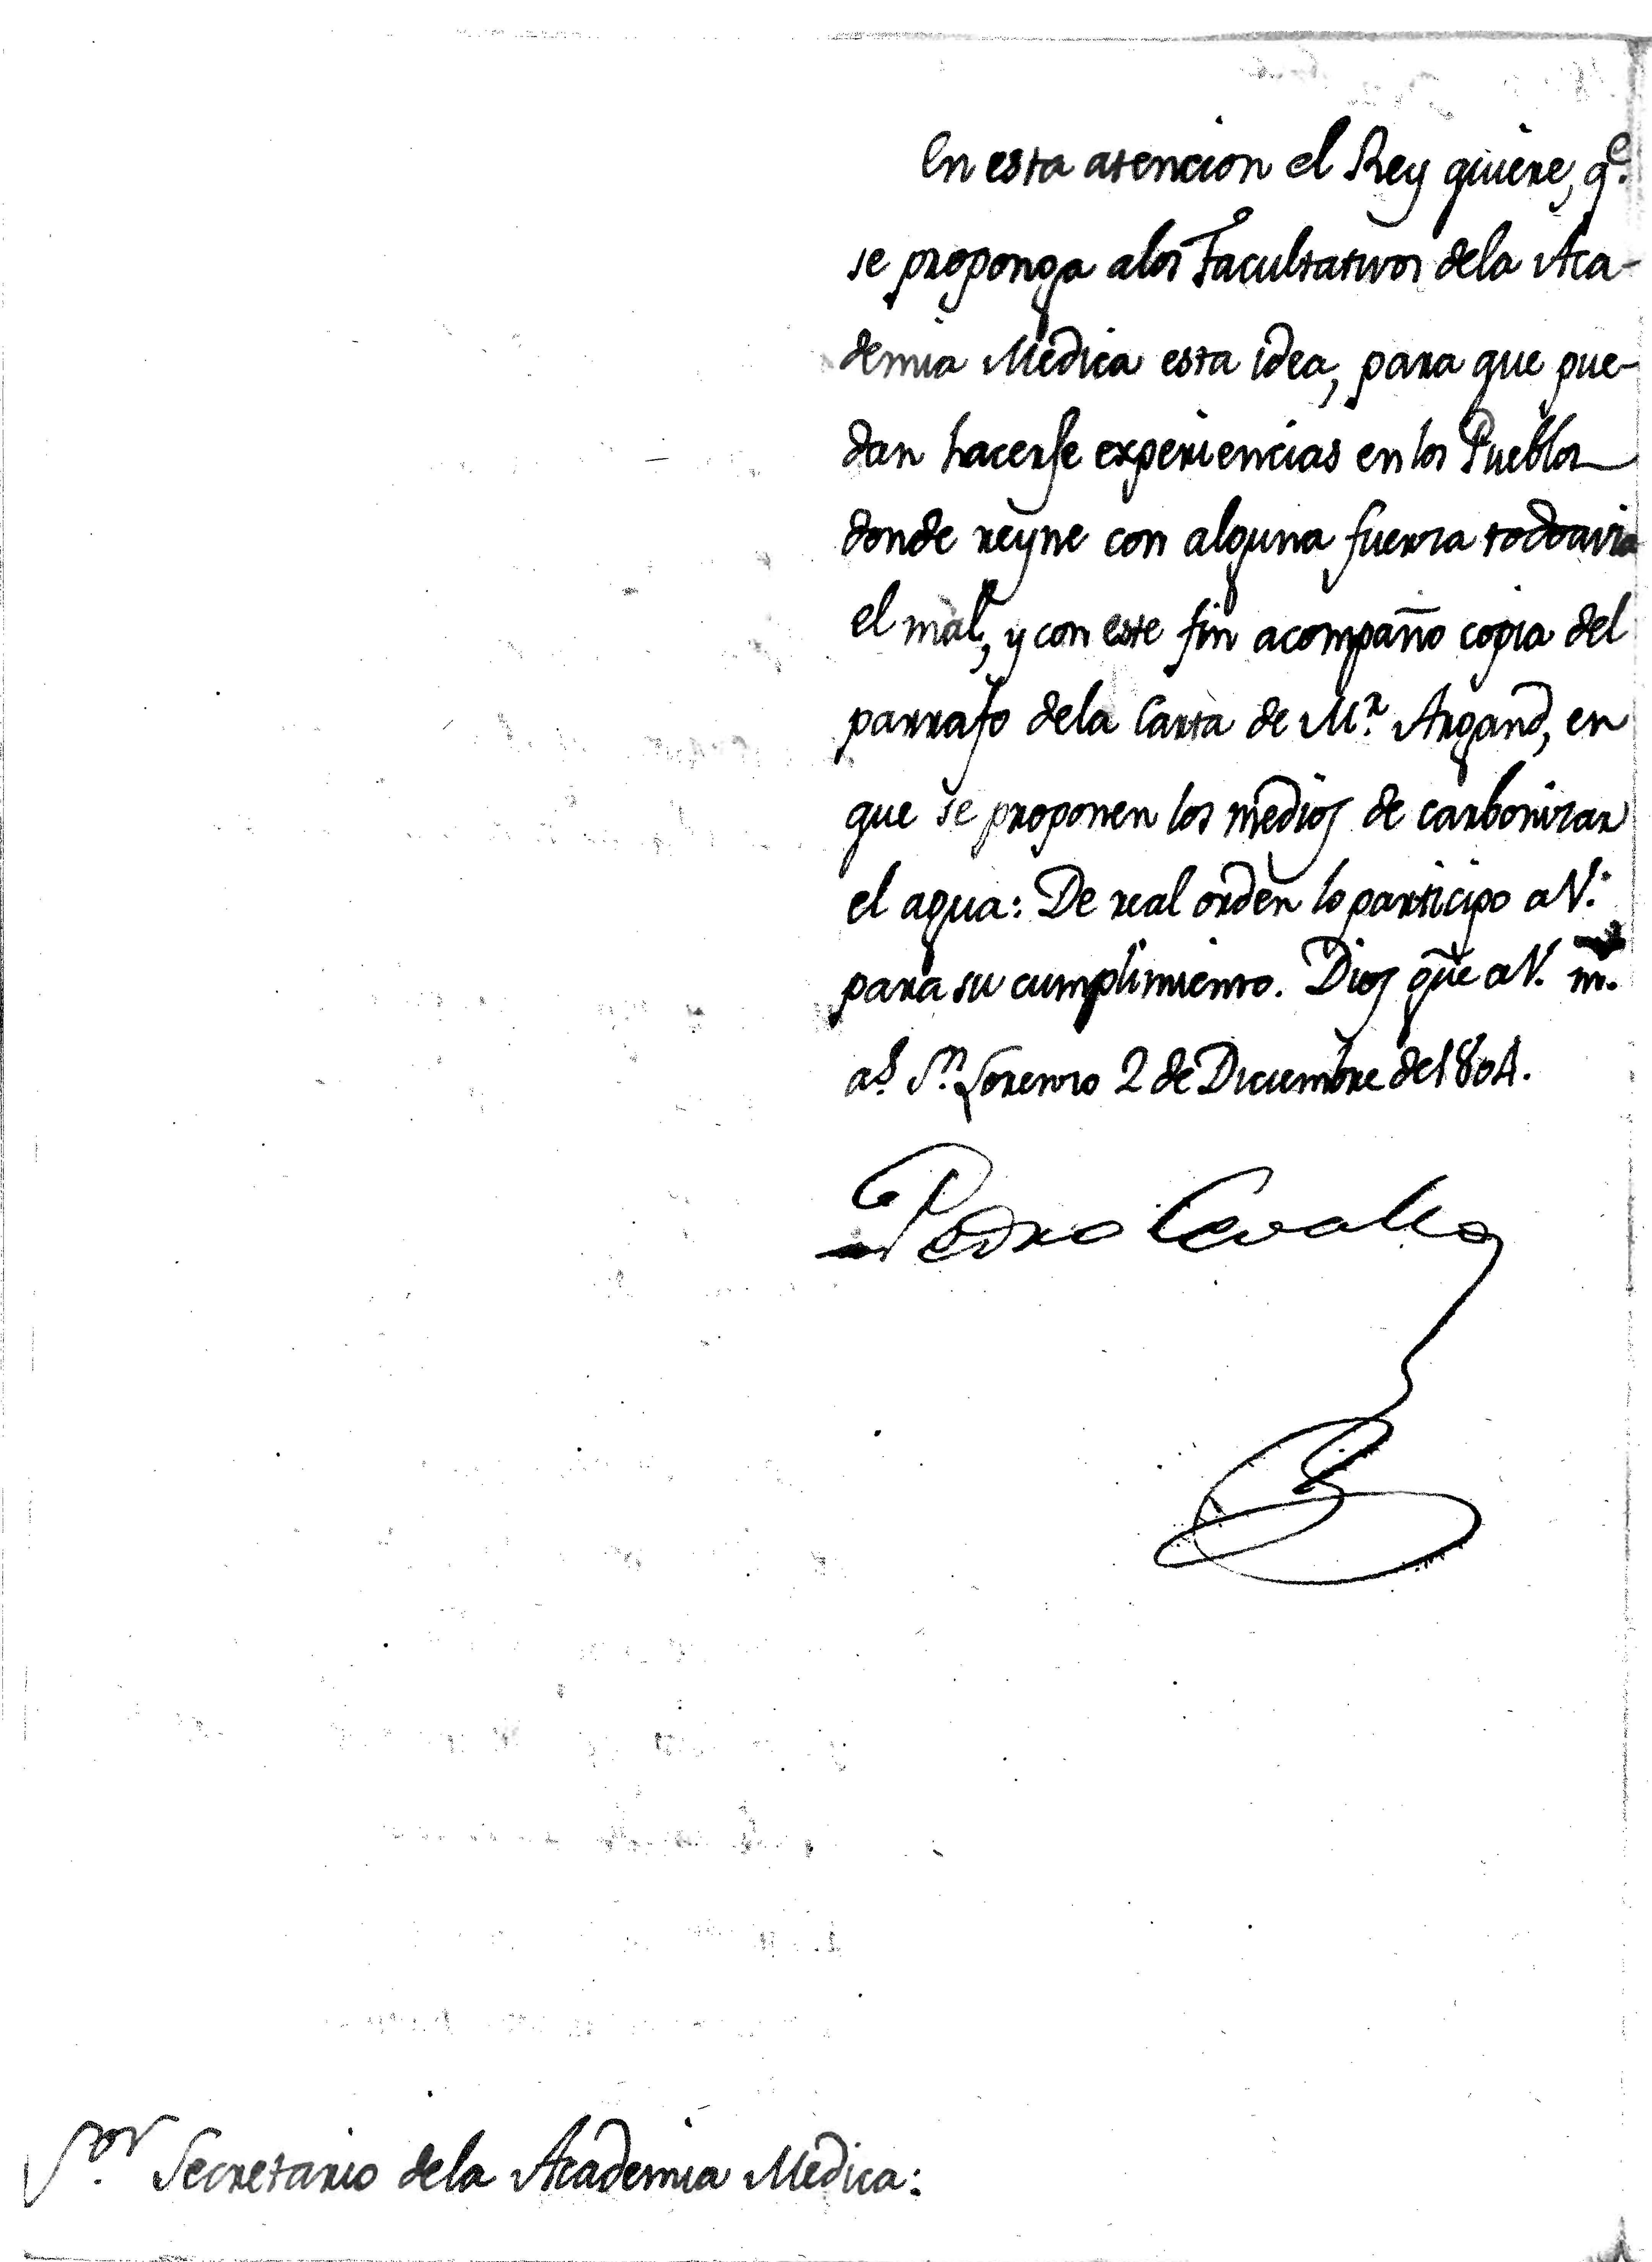 En esta atencion el Rey quiere, q.e
se proponga alos Facultativos dela Aca-
demia Medica esta idea, para que pue-
dan hacerse experiencias en los Pueblos
donde reyne con alguna fuerza todavia
el mal, y con este fin acompaño copia del
parrafo dela Carta de M.r Argand, en
que se proponen los medios de carbonizar
el agua: De real orden lo participo a V.
para su cumplimiento. Dios gūe a V. m.
a.s S.n Lorenzo 2 de Diciembre de 1804.
Pedro Cevallos
S.or Secretario dela Academia Medica: